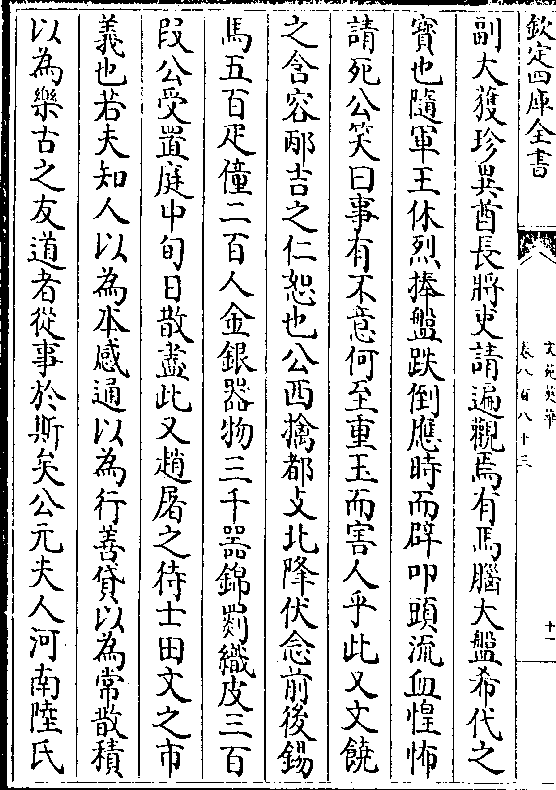 欽定四庫全書
文苑英華
卷八百八十三
十一
副大獲珍異酋長將吏請遍觀焉有馬腦大盤希代之
寳也隨軍王休烈捧盤跌倒應時而碎叩頭流血惶怖
請死公笑曰事有不意何至重玉而害人乎此又文饒
之含容邴吉之仁恕也公西擒都支北降伏念前後錫
馬五百疋僮二百人金銀器物三千器錦罽織皮三百
段公受置庭中旬日散盡此又趙屠之待士田文之市
義也若夫知人以為本感通以為行善貸以為常散積
以為樂古之友道者從事於斯矣公元夫人河南陸氏